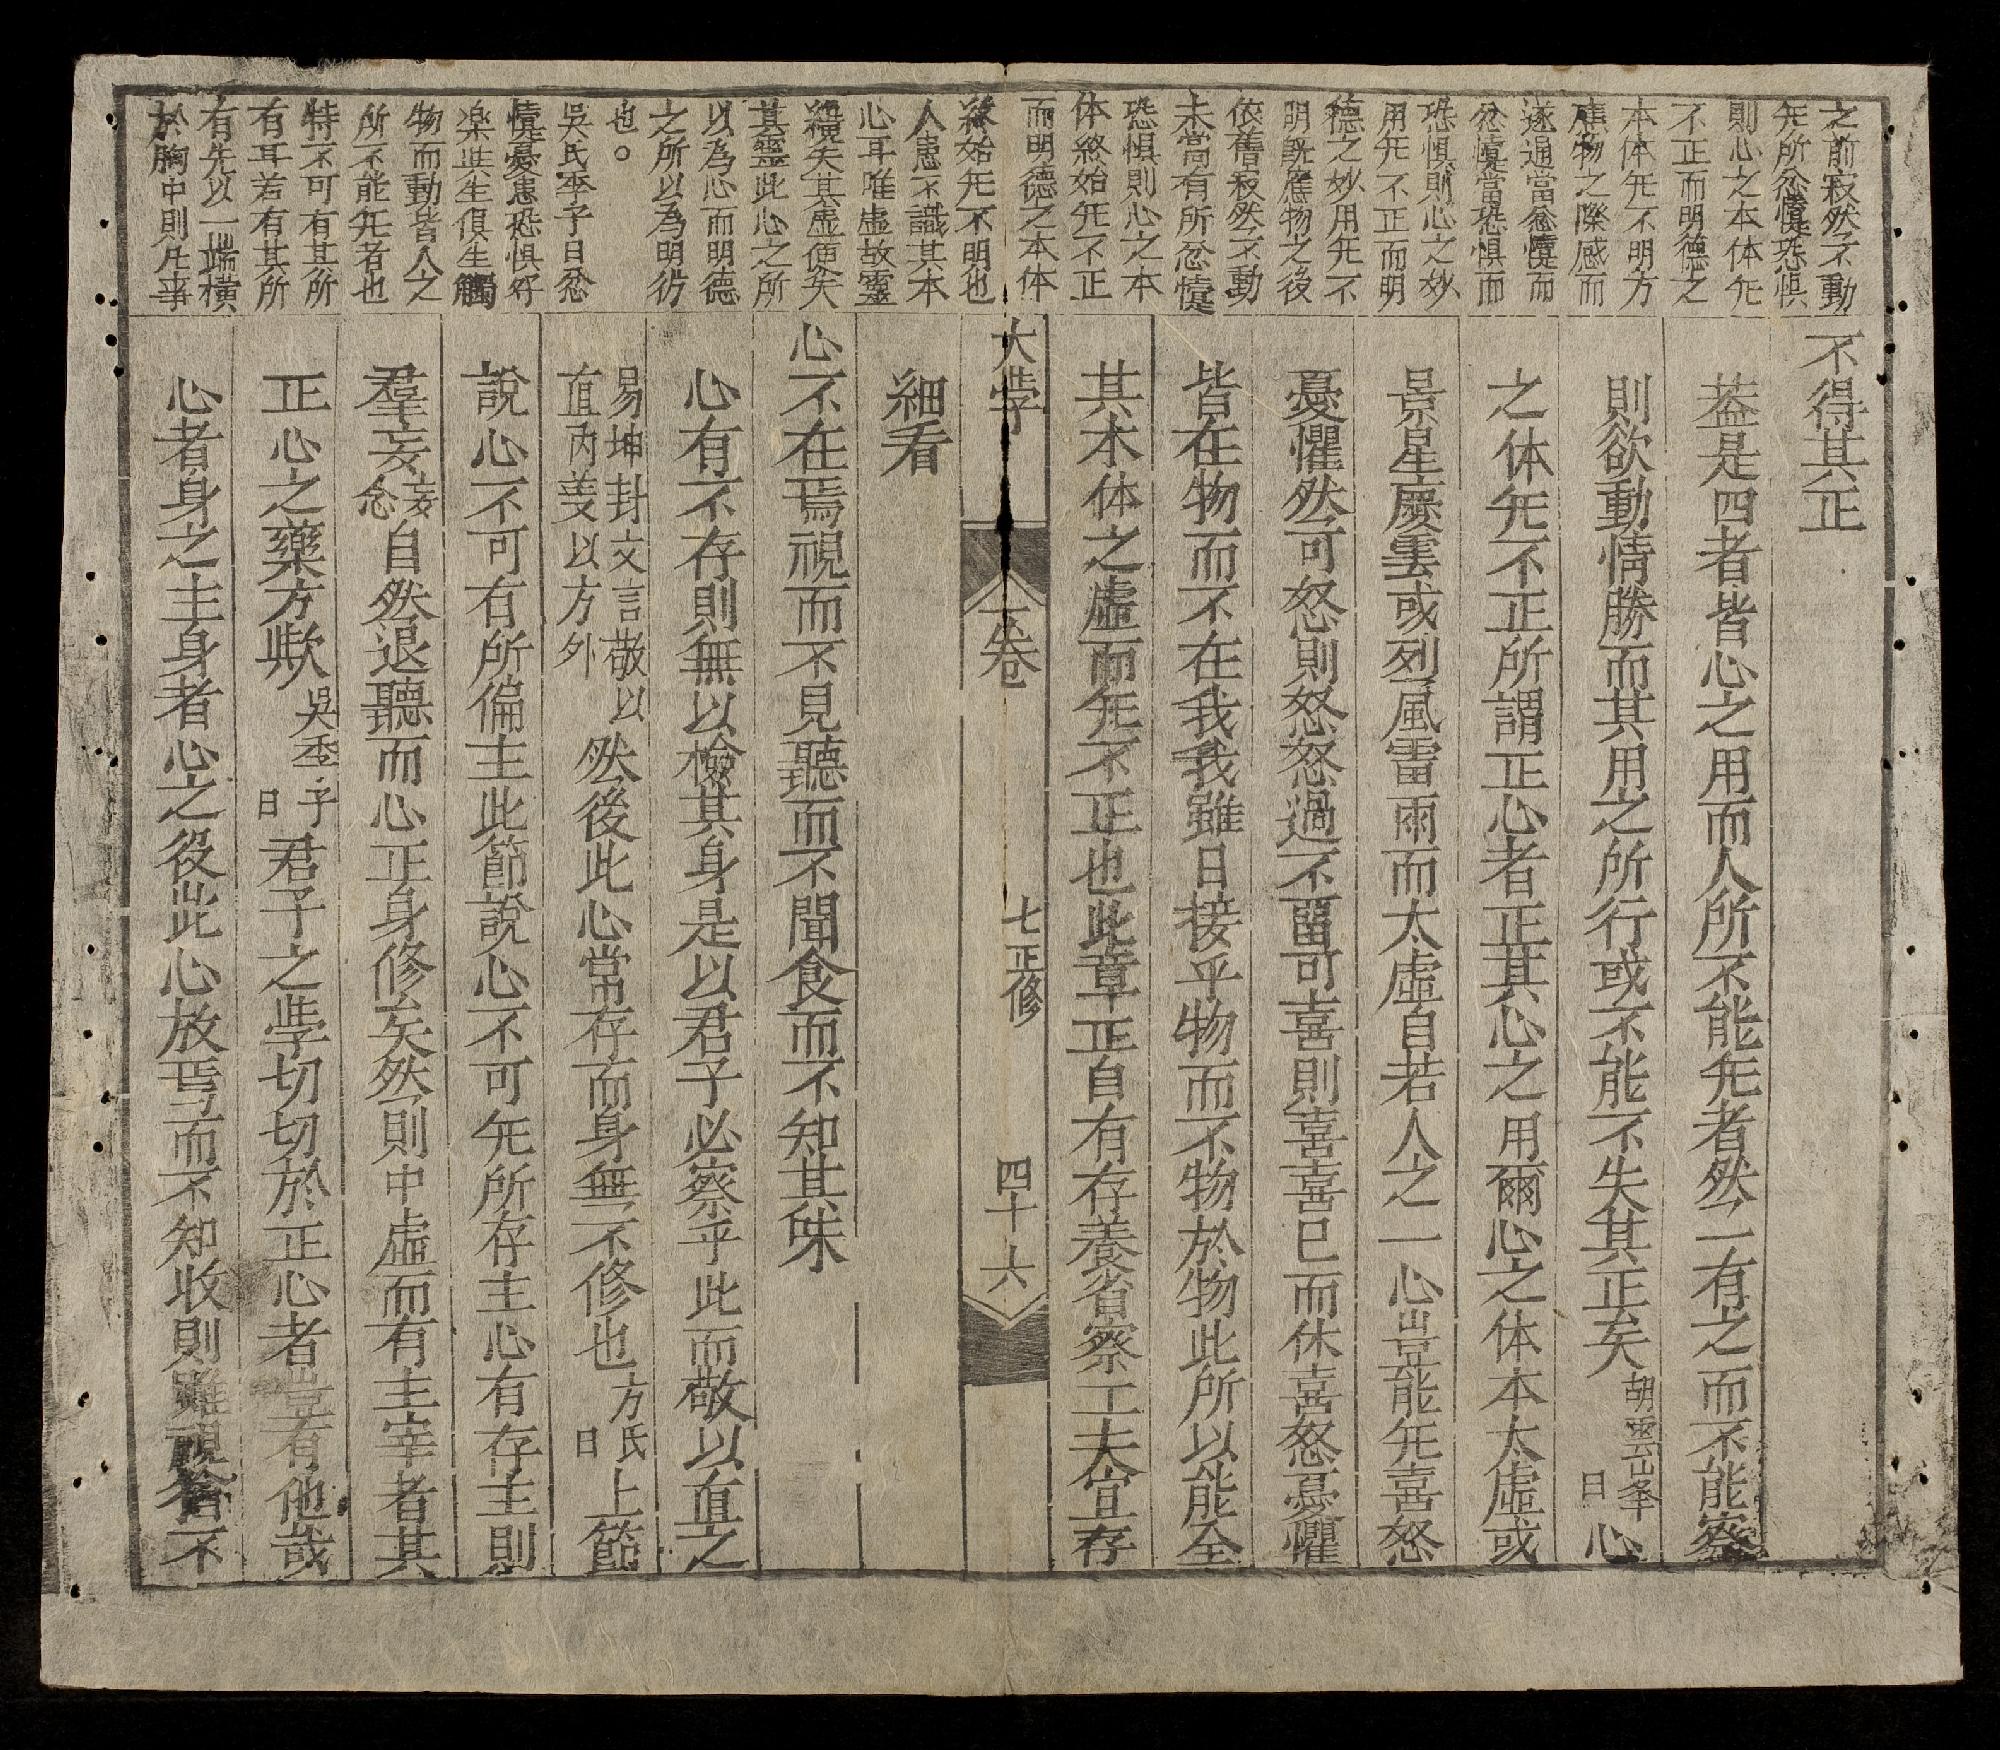 之前寂然不動
旡所忿懥恐惧
則心之本体旡
不正而明德之
本体旡不明方
應物之際感而
遂通當忿懥而
忿懥當恐惧而
恐惧則心之妙
用旡不正而明
德之妙用旡不
明旣應物之後
依舊寂然不動
未嘗有所忿懥
恐惧則心之本
体終始旡不正
而明德之本体
終始旡不明也
人患不識其本
心耳唯虛故靈
纔失其虛便失
其靈此心之所
以為心而明德
之所以為明彷
也。
吳氏季子曰忿
懥憂患恐惧好
楽與生俱生觸
物而動皆人之
所不能旡者也
特不可有其所
有耳若有其所
有先以一端橫
於胸中則凡事
不得其正
葢是四者皆心之用而人所不能旡者然一有之而不能察
則欲動情勝而其用之所行或不能不失其正矣胡雲峯曰心
之体旡不正所謂正心者正其心之用爾心之体本太虛或
景星慶雲或列風雷雨而太虛自若人之一心豈能旡喜怒
憂懼然可怒則怒怒過不畱可喜則喜喜已而休喜怒憂懼
皆在物而不在我我雖日接乎物而不物於物此所以能全
其本体之虛而旡不正也此章正自有存養省察工夫宜存
大斈 下卷 七正修 四十六
細看
心不在焉視而不見聽而不聞食而不知其味
心有不存則無以檢其身是以君子必察乎此而敬以直之
易坤卦文言敬以直內義以方外然後此心常存而身無不修也方氏曰上節
說心不可有所偏主此節說心不可旡所存主心有存主則
羣妄妄念自然退聽而心正身修矣然則中虛而有主宰者其
正心之藥方歟吳季子曰君子之斈切切於正心者豈有他哉
心者身之主身者心之役此心放焉而不知收則雖視者不